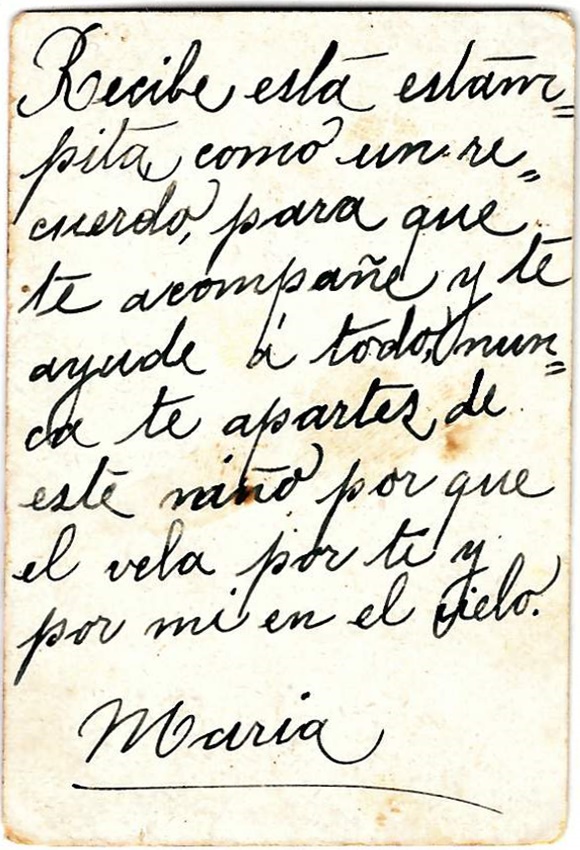 Recibe está estam=
pita, como un re=
cuerdo, para que
te acompañe y te
ayude á todo, nun=
ca te apartes de
este niño por que
el vela por ti y
por mi en el cielo.
Maria